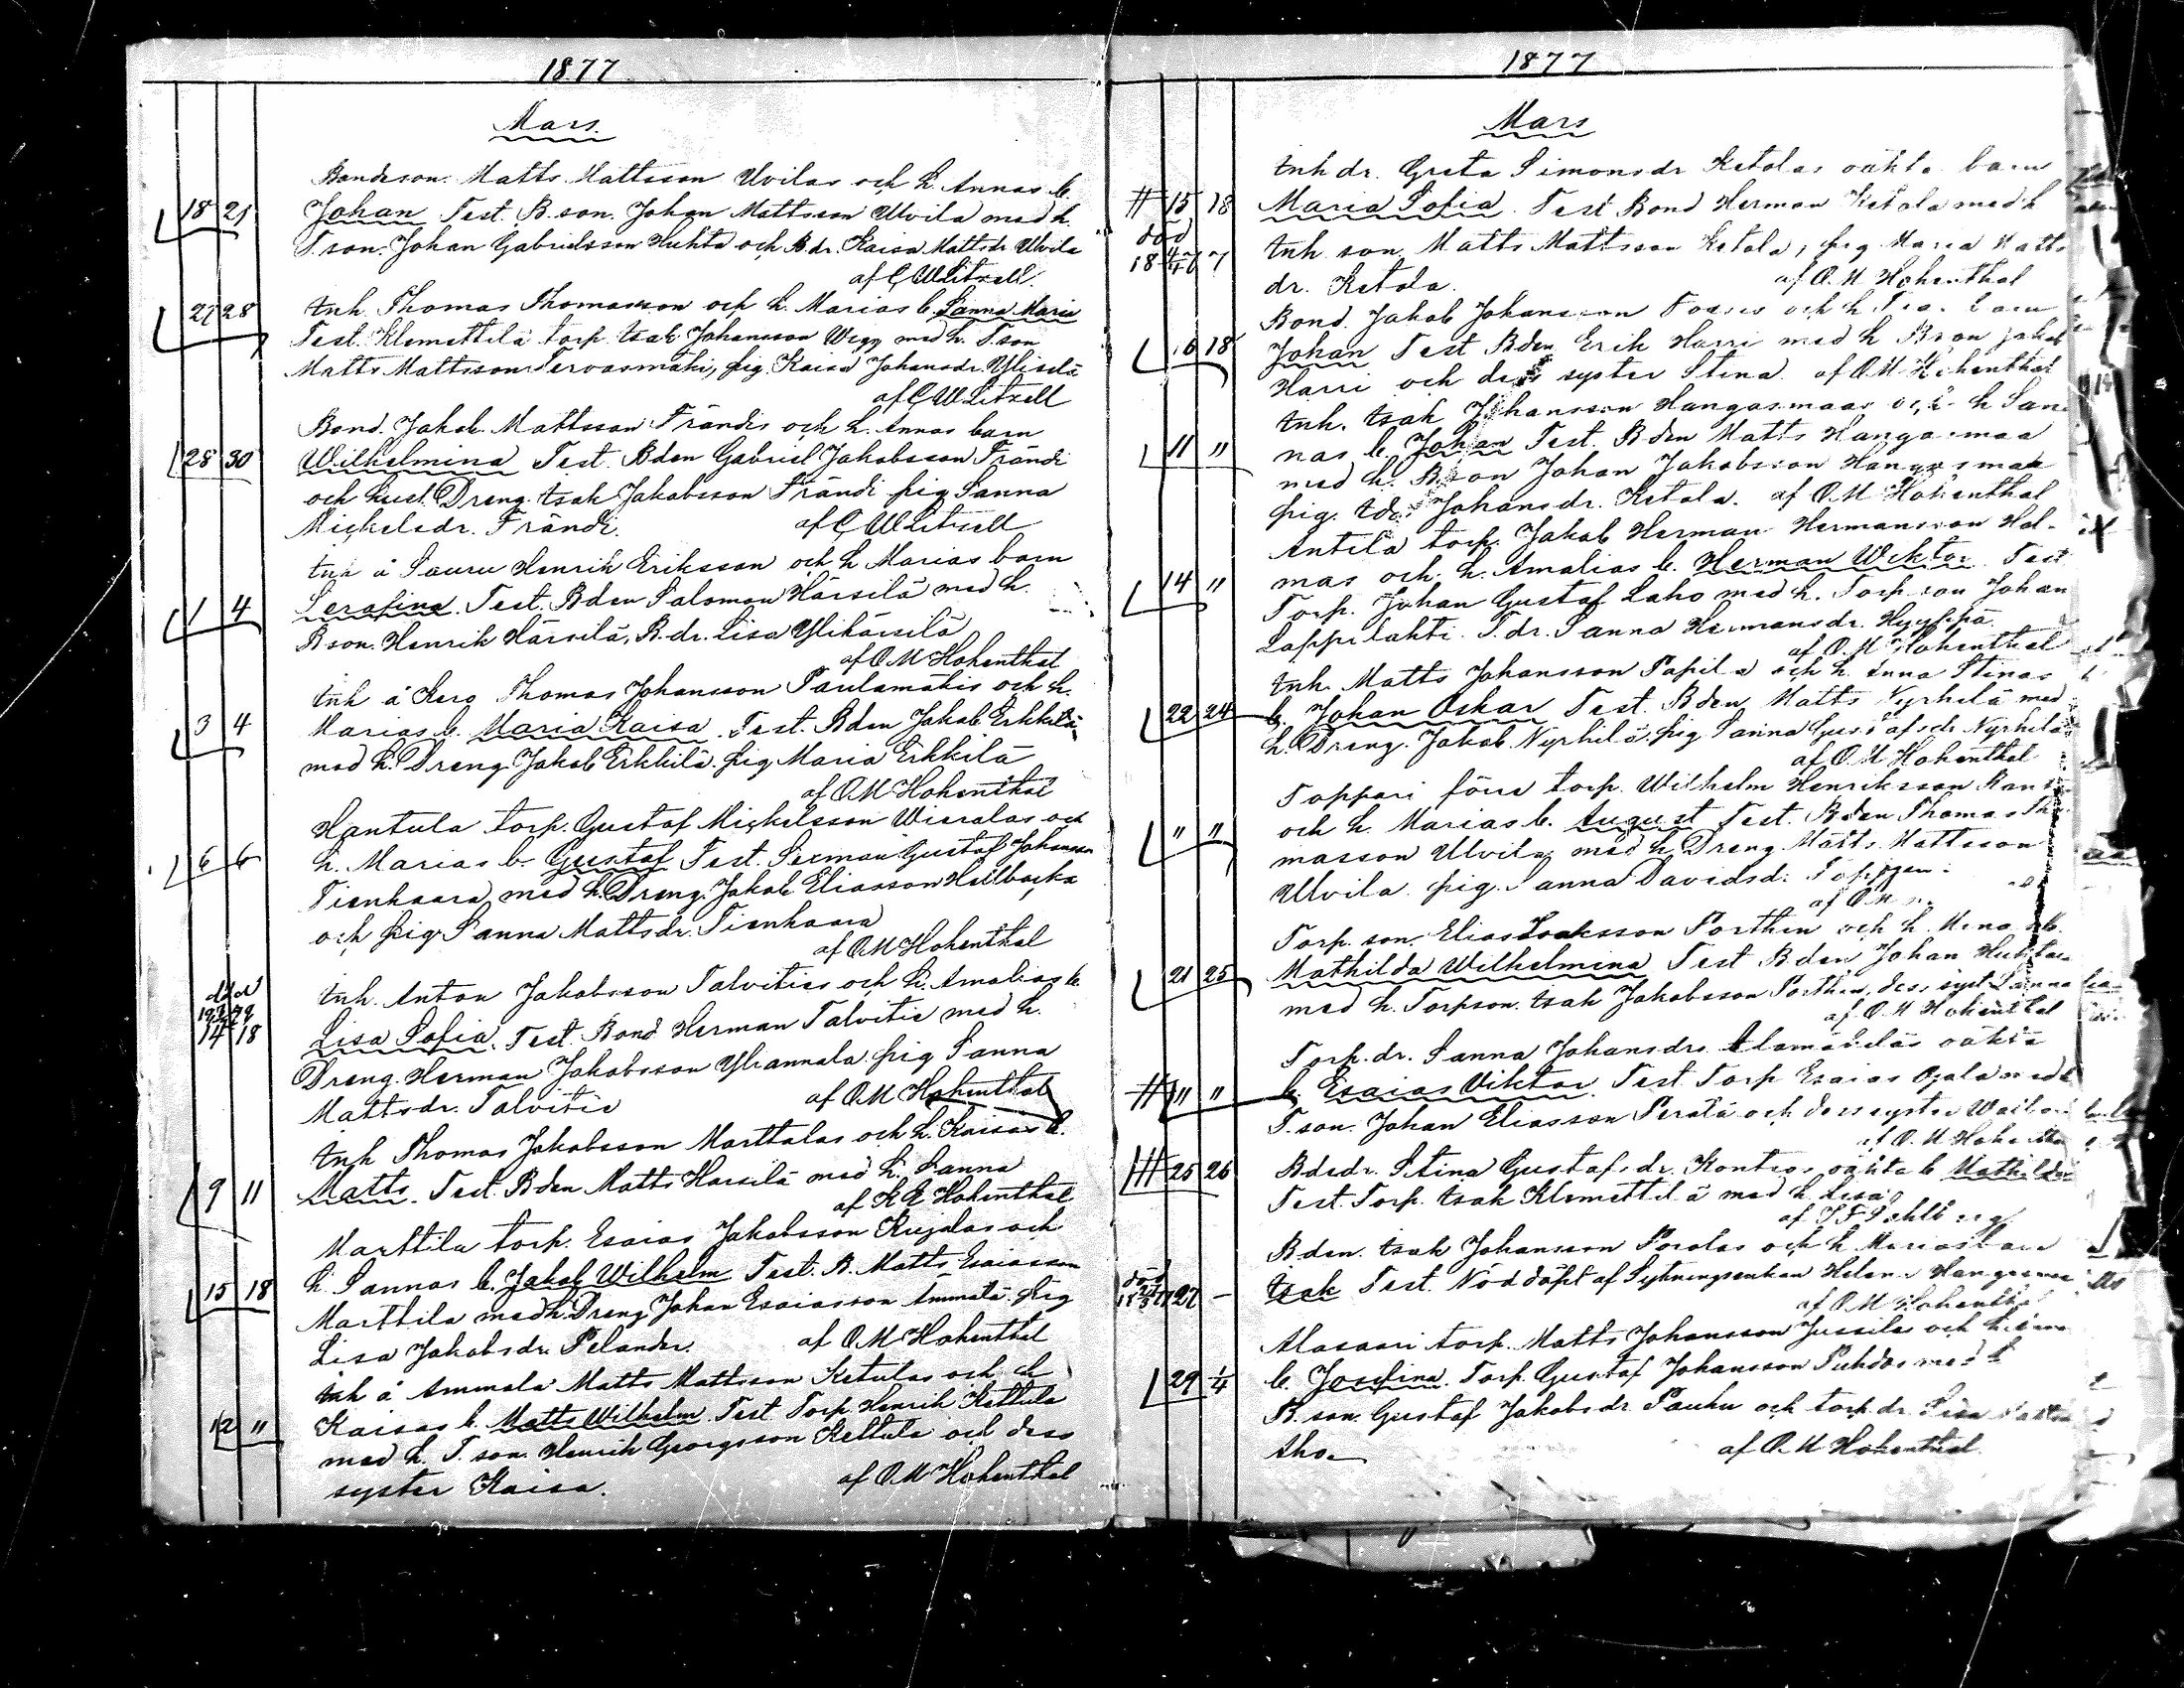 1877
Mars.
Bondeson. Matts Mattsson Ulvilas och h. Annas b.
18 21 Johan Test. B.son. Johan Mattsson Ulvila med h.
T.son. Johan Gabrielsson Huhta och B.dr. Kaisa Mattsdr Ulvila
af C W Litzell.
27 28 Inh. Thomas Thomasson och h. Marias b. Sanna Maria
Test. Klemettilä torp. Isak Johansson Wegg med h. T.son
Matts Mattsson Tervasmäki, pig. Kaisa Johansdr. Yliselä
af C W Litzell
Bond. Jakob Mattsson Frändis och h. Annas barn
28 30 Wilhelmina Test. Bden Gabriel Jakobsson Frändi
och hust. Dreng. Isak Jakobsson Frändi pig Sanna
Mickelsdr. Frändi. af C W Litzell
Inh å Sauru Henrik Eriksson och h Marias barn
1 4 Serafina. Test. Bden Salomon Härsilä med h.
B son. Henrik Härsilä, B.dr. Lisa Ylihärsilä
af O M Hohenthal
Inh å Kero Thomas Johansson Paulamäkis och h.
3 4 Marias b. Maria Kaisa. Test. Bden Jakob Erkkilä
med h. Dreng Jakob Erkkilä. pig Maria Erkkilä
af O M Hohenthal
Hantula torp. Gustaf Mickelsson Wieralas och
6 6 h. Marias b. Gustaf Test. Sexman Gustaf Johansson
Tienhaara med h. Dreng. Jakob Eliasson Hillbacka
och pig Sanna Mattsdr. Tienhaara
af O M Hohenthal
Inh. Anton Jakobsson Talvities och h. Amalias b.
död
14 18 Lisa Sofia. Test. Bond Herman Talvitie med h.
Dreng. Herman Jakobsson Yliannala pig Sanna
Mattsdr. Talvitie af O M Hohenthal
Inh Thomas Jakobsson Marttalas och h. Kaisas b.
9 11 Matts. Test. Bden Matts Harsilä med h. Sanna
af K E Hohenthal
Marttila torp. Esaias Jakobsson Kujalas och
15 18 h. Sannas b. Jakob Wilhelm Test. B. Matts Esaiasson
Marttila med h. Dreng Johan Esaiasson Ammätä. pig
Lisa Jakobsdr. Pelander. af O M Hohenthal
Inh å Ammala Matts Mattsson Ketulas och h
12 " Kaisas b. Matts Wilhelm. Test. Torp. Henrik Kettula
med h. T. son. Henrik Georgsson Kettula och dess
syster Kaisa. af O M Hohenthal
1877
Mars
Inh dr. Greta Simonsdr Ketolas oäkta barn
# 15 18 Maria Sofia. Test Bond Herman Ketola med h
död
18 4/4 77 Inh. son Matts Mattsson Ketola, pig Maria Matts
dr. Ketola. af O. M Hohenthal
Bond. Jakob Johansson och h barn
16 18 Johan Test Bden Erik Harri med h Bson Jakob
Harri och dess syster Stina. af O M Hohenthal
Inh. Isak Johansson Hangasmaas och h San
11 " nas b. Johan Test. Bden Matts Hangasmaa
med h. Bson Johan Jakobsson Hangasmaa
pig. Ida Johansdr. Ketola. af O. M Hohenthal
Antila torp. Jakob Herman Hermansson Hol-
14 " mas och h. Amalias b. Herman Wiktor. Test
Torp. Johan Gustaf Laho med h. Torp son Johan
Lappilahti. T. dr. Sanna Hermansdr. Hyyppä.
af O. M Hohenthal
Inh. Matts Johansson Papila och h. Anna Stinas
22 24 b. Johan Oskar Test. Bden Matts Nyrhilä med
h. Dreng. Jakob Nyrhilä pig Sanna Gustafsdr Nyrhilä
af O. M Hohenthal
Toppari förre torp. Wilhelm Henriksson
" " och h. Marias b. August Test. Bden Thomas Tho
masson Ulvila med h Dreng Matts Mattsson
Ulvila. pig. Sanna Davidsd.
af O M
Torp. son. Elias Isaksson Porthin och h. Minas b.
21 25 Mathilda Wilhelmina Test Bden Johan Huhtala
med h. Torpson. Isak Jakobsson Porthin, dess syst Sanna
af O. M Hohenthal
Torp. dr. Sanna Johansdrs Alamäkiläs oäkta
# " " b. Esaias Viktor. Test Torp Esaias Ojala med h
T. son. Johan Eliasson Perälä och dess syster
af O. M Hohenthal
# 25 26 Bdsdr. Stina Gustafsdr. Kontios oäkta b Mathilda
Test. Torp. Isak Klemettilä med h Lisa
af
Bden. Isak Johansson Porolas och h Marias barn
död
27 – Isak Test. Nöddöpt af Sytningsenkan Helena Hangasmaa
af O M Hohenthal
Alasaari torp. Matts Johansson Jussilas och h
29 1/4 b. Josefina. Torp. Gustaf Johansson Puhdas med h
B. son. Gustaf Jakobsdr Pauhu och torp. dr. Lisa
Aho. af O. M Hohenthal